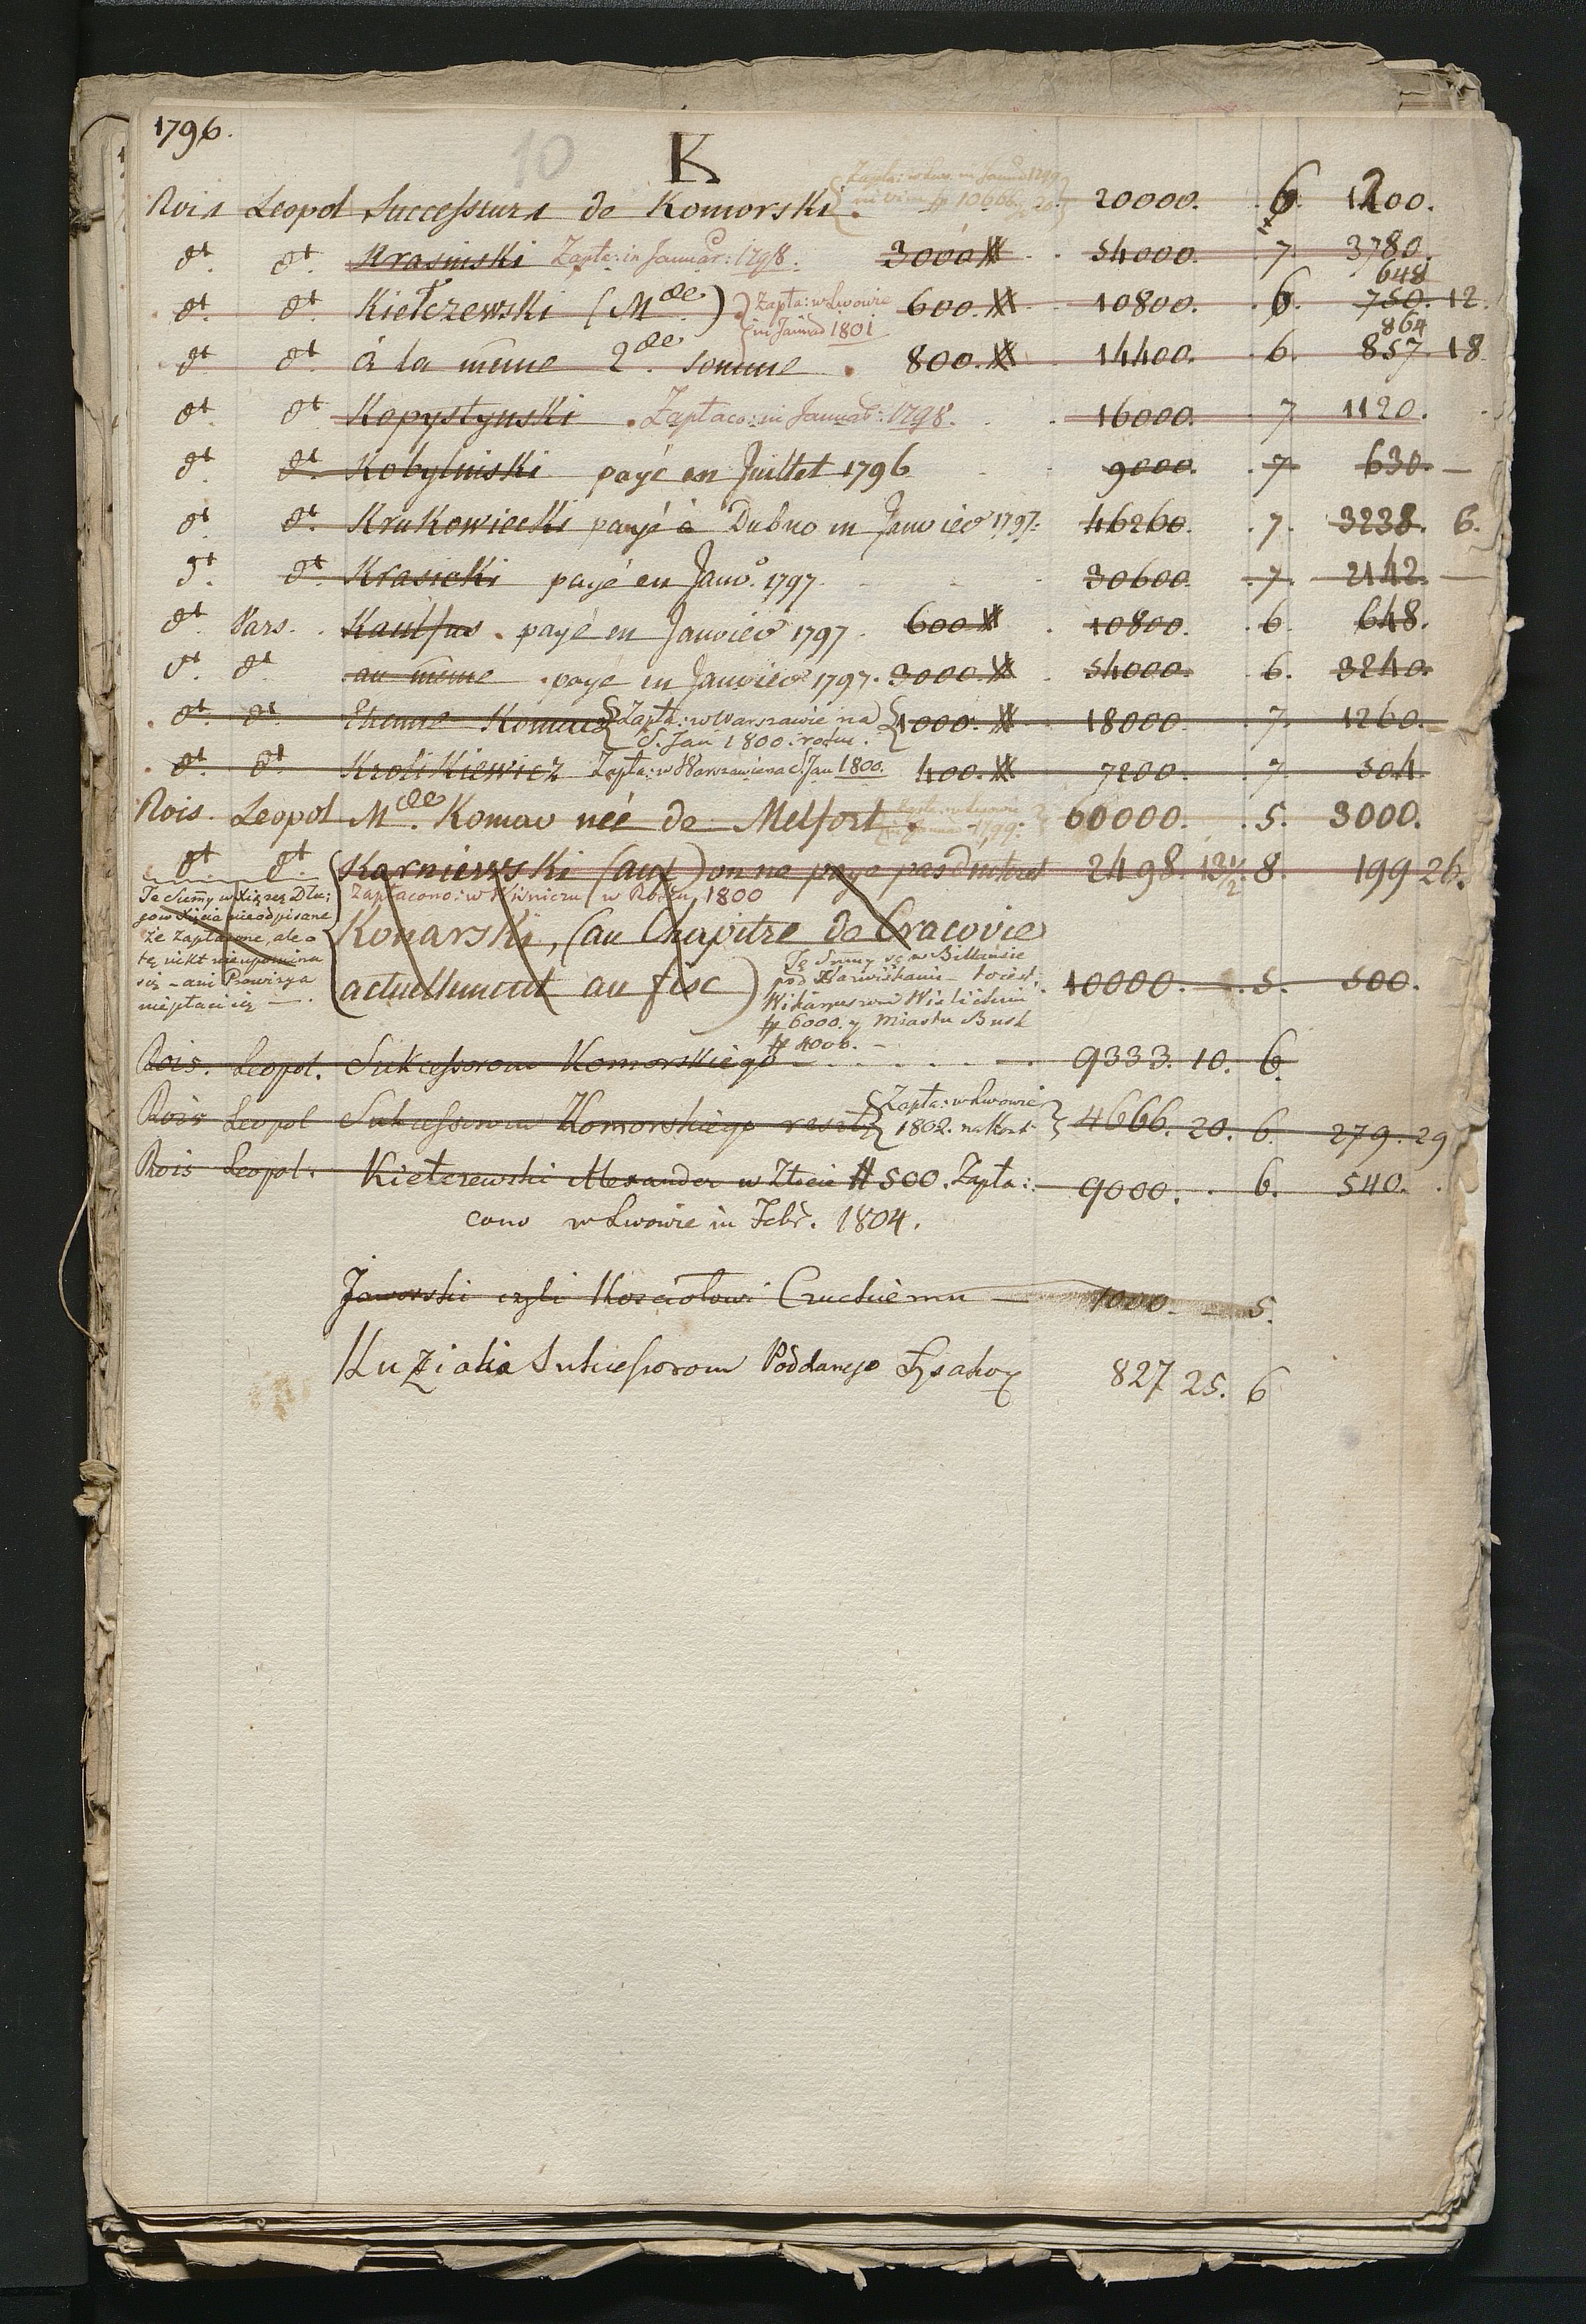 1796.
10
K
Rois Leopol Successeurs de Komorski. 20000. 6. 1200.
dt. dt. Krasinski Zapła: in Januar: 1798. 3000 # 54000. 7. 3780.
648
dt. dt. Kiełczewski (Mde.) Zapła: w Lwowie 600. # 10800. 6. 750. 12.
in Januar 1801
864
dt. dt. à la même 2de. somme 800. # 14400. 6. 857. 18
dt. dt. Kopystynski Zapłaco: in Januar: 1798. 16000. 7. 1120.
dt. dt. Kobylinski payé en Juillet 1796 9000. 7 630. —
dt. dt. Krukowiecki payé à Dubno in Janvier 1797. 46260. 7. 3238. 6.
dt. dt. Krasicki payé en Janv. 1797. 30600. 7. 2142. —
dt. Vars. Kaulfus. payé en Janvier 1797. 600 # 10800. 6. 648.
dt. dt. au même payé en Janvier 1797. 3000. # 54000. 6. 3240.
dt. dt. Zapła: w Warszawie na 1000. # 18000. 7. 1260.
S. Jan 1800.
dt. dt. Krolikiewicz Zapła: w Warszawie na S. Jan 1800. 400. # 7200. 7. 504.
Rois. Leopol Mde. Komar neé de Melfort 60000. 5. 3000.
dt. dt. Karniewski (aux) on ne paye pas d'interet 2498. 13 1/2 8. 199 26.
Zapłacono: w Wiśniczu w 1800
Te Summy w Xiązce Dłu:
gow Xięcia nieodpisane
że zapłacone, ale o
tę nikt nieupomina
się - ani Prowizya
niepłaci się —.
Konarski, (au Chapitre de Cracovie
actuellement au fisc) 10000. 5. 500.
Te Summy są w Billansie
pod
6000. y Miastu Busk
4000. —
Rois. Leopol. Sukcessorom Komorskiego 9333. 10. 6.
Rois Leopol Sukcessorom Komorskiego reszt Zapła: w Lwowie 4666. 20. 6. 279. 29
1802.
Rois Leopol. Kiełczewski Alexander w Złocie # 500. Zapła: 9000. 6. 540.
cono w Lwowie in Febr. 1804.
Jaworski czyli Kosciołowi 1000. — 5.
Sukcessorom Poddanego 827 25. 6